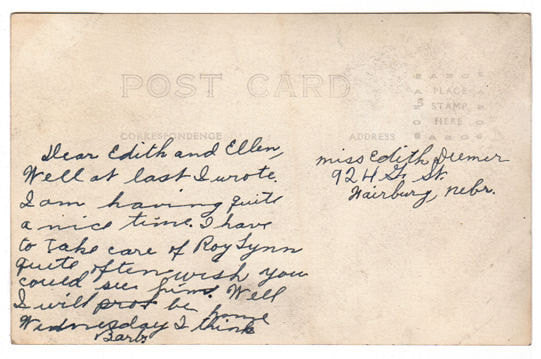 POST CARD
AZO
PLACE
STAMP
HERE
CORRESPONDENCE
ADDRESS
Dear Edith and Ellen,
Well at last I wrote.
I am having quite
a nice time. I have
to take care of Roy Lynn
quite often wish you
could see him. Well
I will prob be home
Wednesday I think
Barb.
miss Edith Diemer
924 G. St.
Fairbury, Nebr.